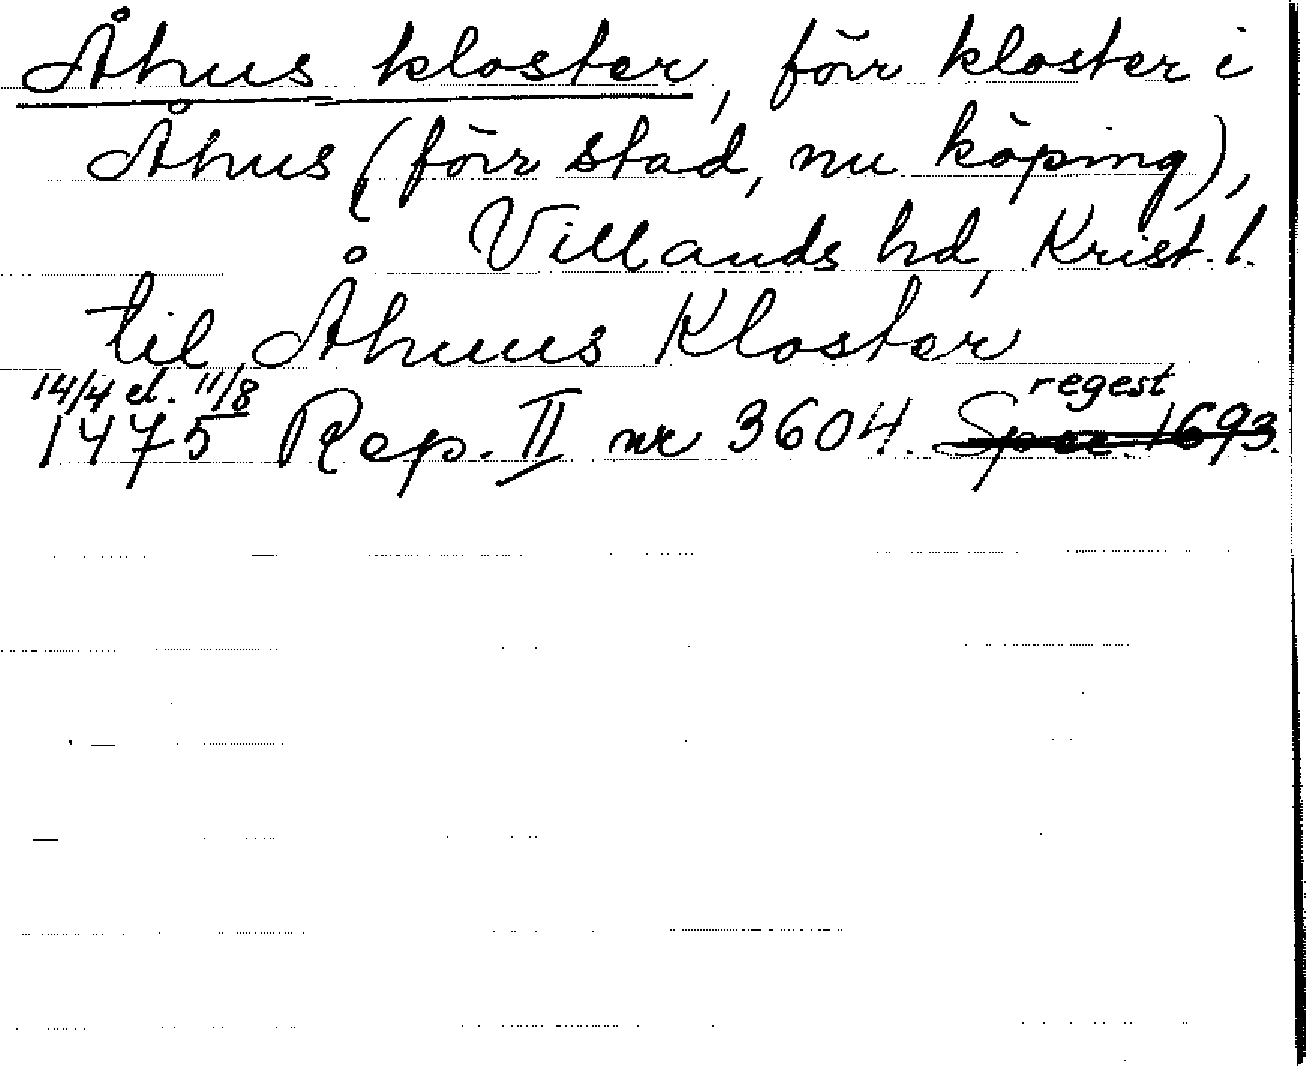 Åhus kloster, förr kloster i
Åhus (förr stad, nu köping),
Villands hd, Krist. l.
til Åhuus Kloster
14/4 el. 11/8 regest
1475 Rep. II nr 3604. Spa. 1693.